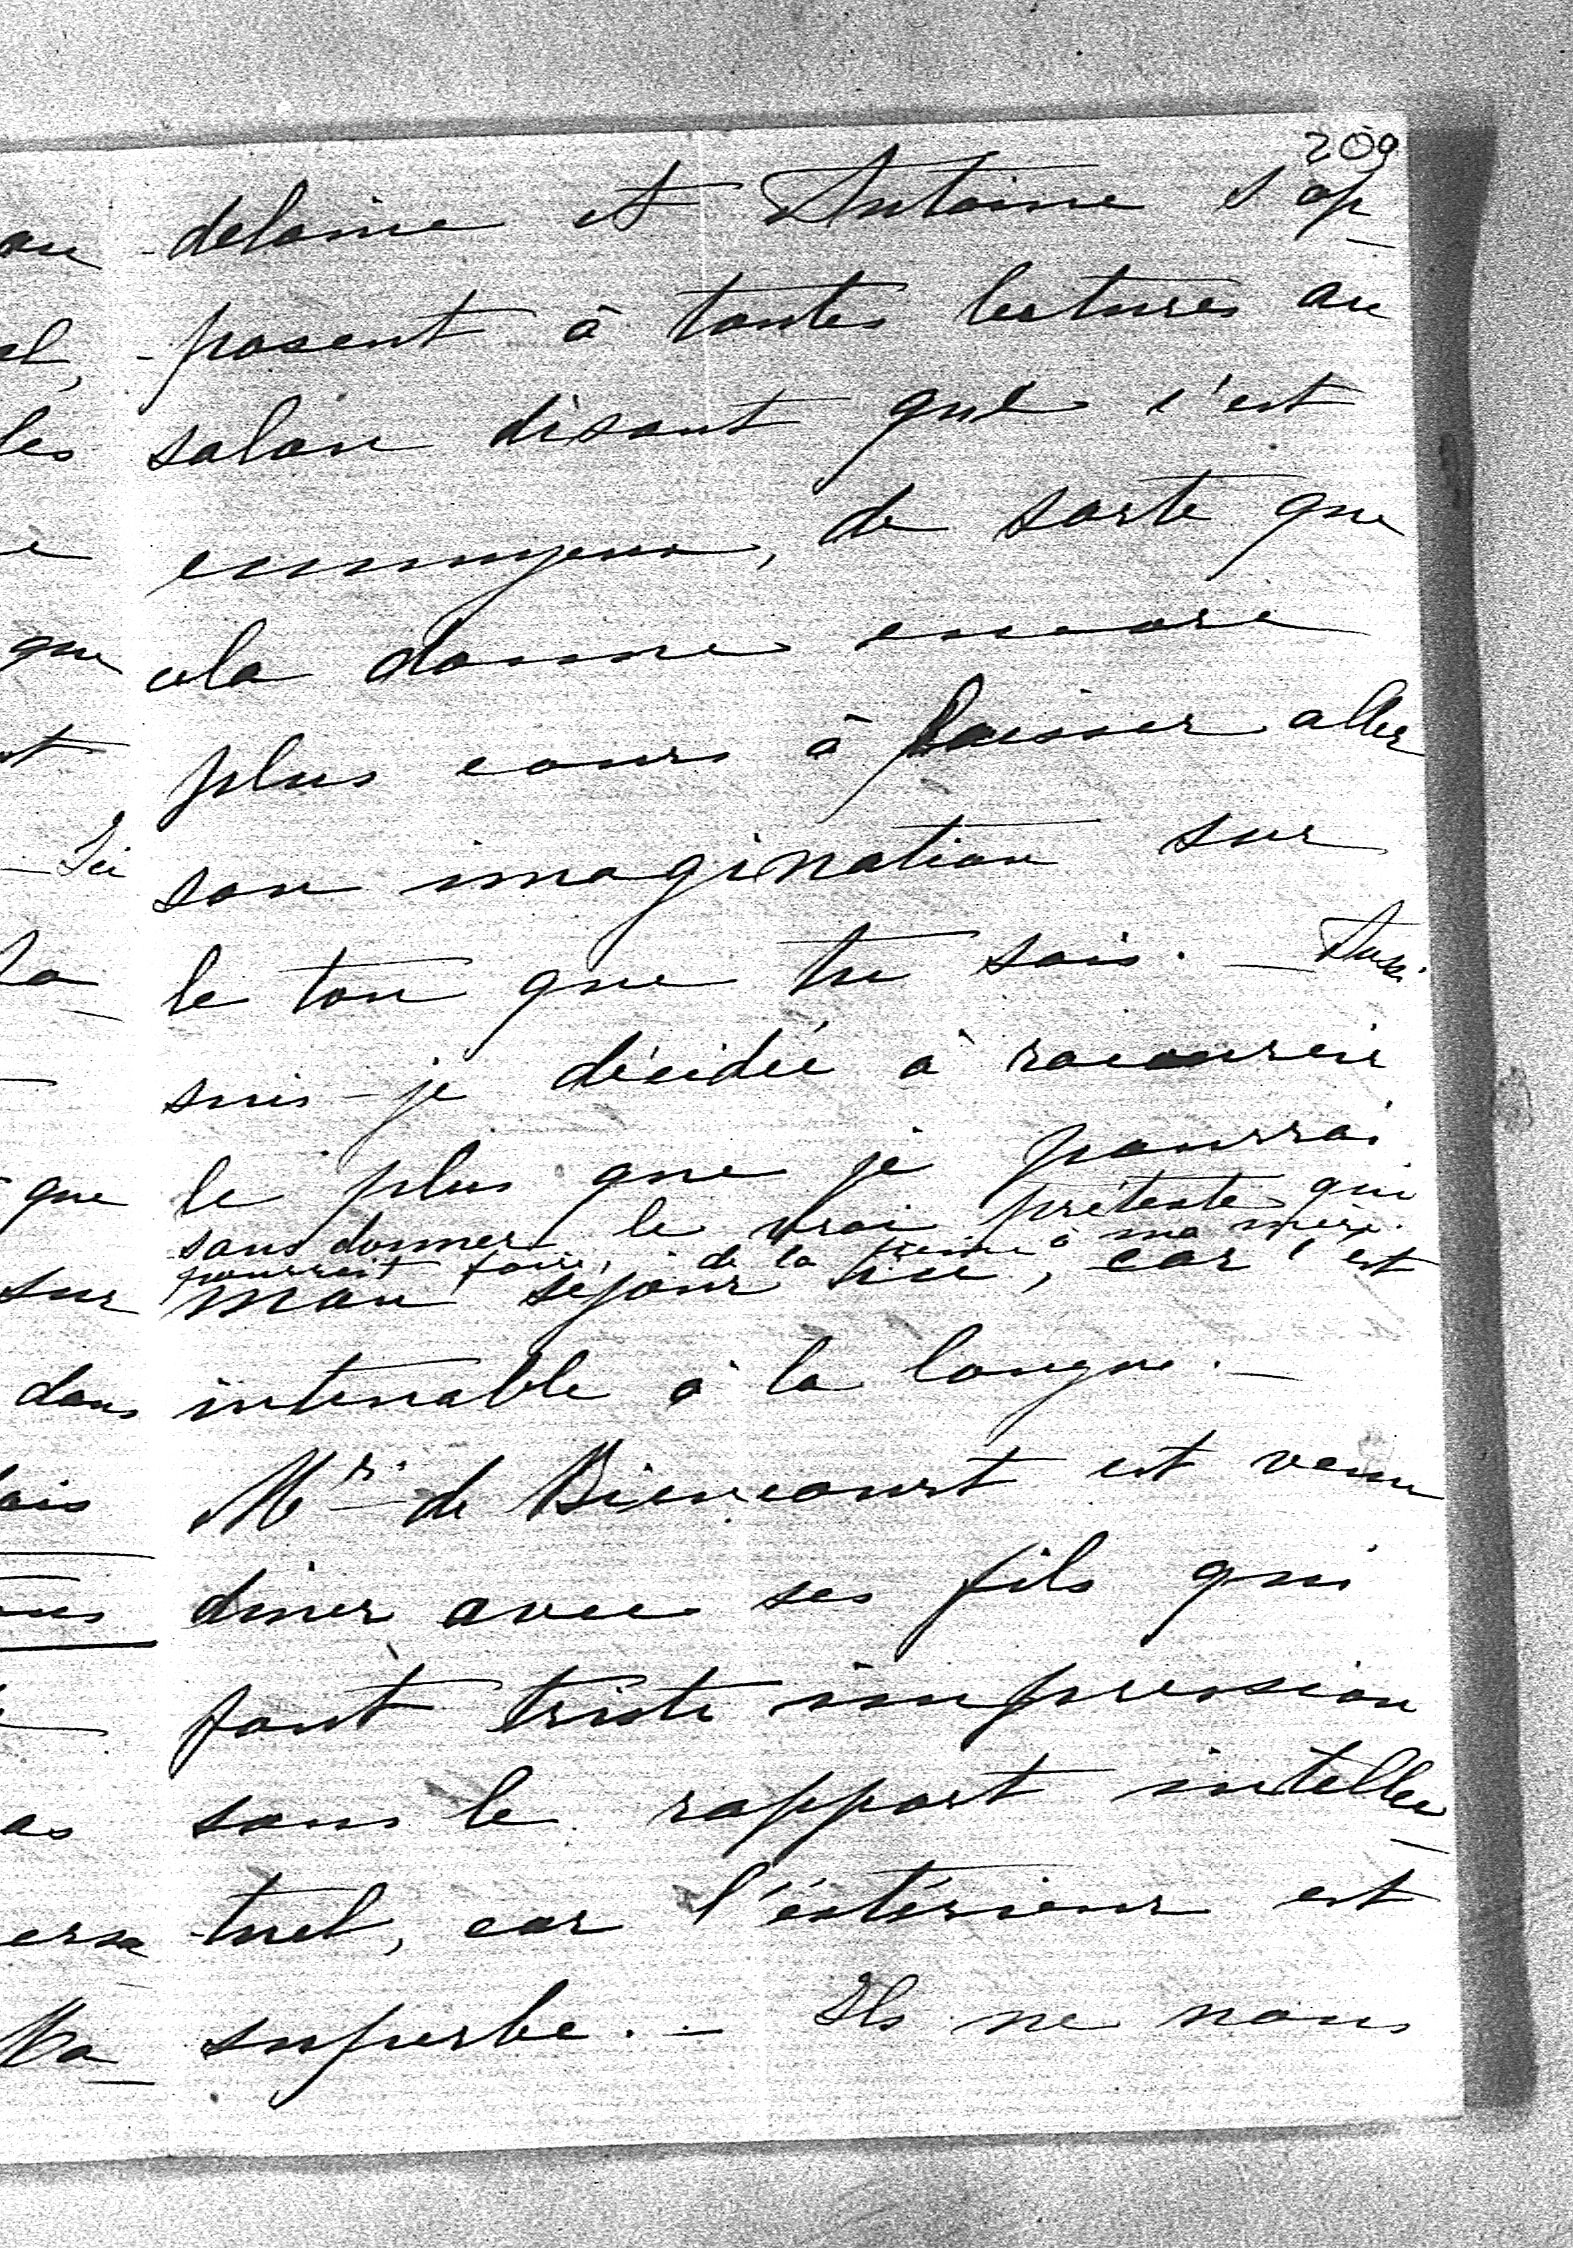 209
-delaine et Antoine s'op-
-posent à toutes lectures au
salon disant que c'est
ennuyeux, de sorte que
cela donne encore
plus cours à laisser aller
son imagination sur
le ton que tu sais. — Aussi
suis-je décidée à raccourcir
le plus que je pourrai
sans donner le vrai prétexte qui
pourrait faire de la peine à ma mère.
mon séjour ici, car c'est
intenable à la longue. —
Mr. de Biencourt est venu
diner avec ses fils qui
font triste impression
sous le rapport intellec-
-tuel, car l'éxtérieur est
superbe. — Ils ne nous